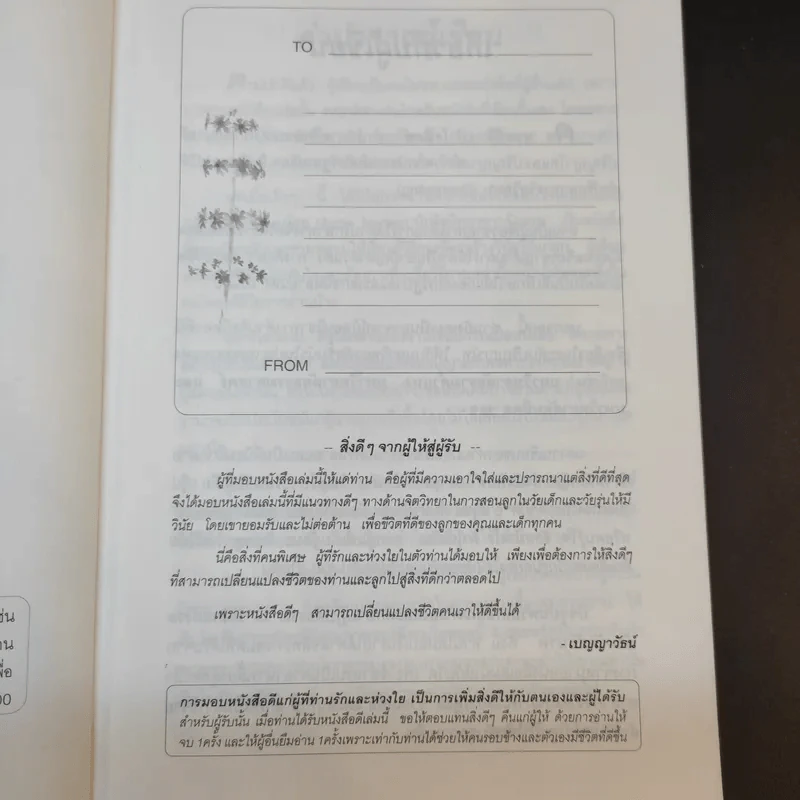 TO
FROM
– สิ่งดีๆ จากผู้ให้สู่ผู้รับ --
ผู้ที่มอบหนังสือเล่มนี้ให้แด่ท่าน คือผู้ที่มีความเอาใจใส่และปรารถนาแต่สิ่งที่ดีที่สุด
จึงได้มอบหนังสือเล่มนี้ที่มีแนวทางดีๆ ทางด้านจิตวิทยาในการสอนลูกในวัยเด็กและวัยรุ่นให้มี
วินัย โดยเขายอมรับและไม่ต่อต้าน เพื่อชีวิตที่ดีของลูกของคุณและเด็กทุกคน
นี่คือสิ่งที่คนพิเศษ ผู้ที่รักและห่วงใยในตัวท่านได้มอบให้ เพียงเพื่อต้องการให้สิ่งดีๆ
ที่สามารถเปลี่ยนแปลงชีวิตของท่านและลูกไปสู่สิ่งที่ดีกว่าตลอดไป
เพราะหนังสือดีๆ สามารถเปลี่ยนแปลงชีวิตคนเราให้ดีขึ้นได้
- เบญญาวัธน์
การมอบหนังสือดีแก่ผู้ที่ท่านรักและห่วงใย เป็นการเพิ่มสิ่งดีให้กับตนเองและผู้ได้รับ
สำหรับผู้รับนั้น เมื่อท่านได้รับหนังสือดีเล่มนี้ ขอให้ตอบแทนสิ่งดีๆ คืนแก่ผู้ให้ ด้วยการอ่านให้
จบ 1ครั้ง และให้ผู้อื่นยืมอ่าน 1ครั้งเพราะเท่ากับท่านได้ช่วยให้คนรอบข้างและตัวเองมีชีวิตที่ดีขึ้น